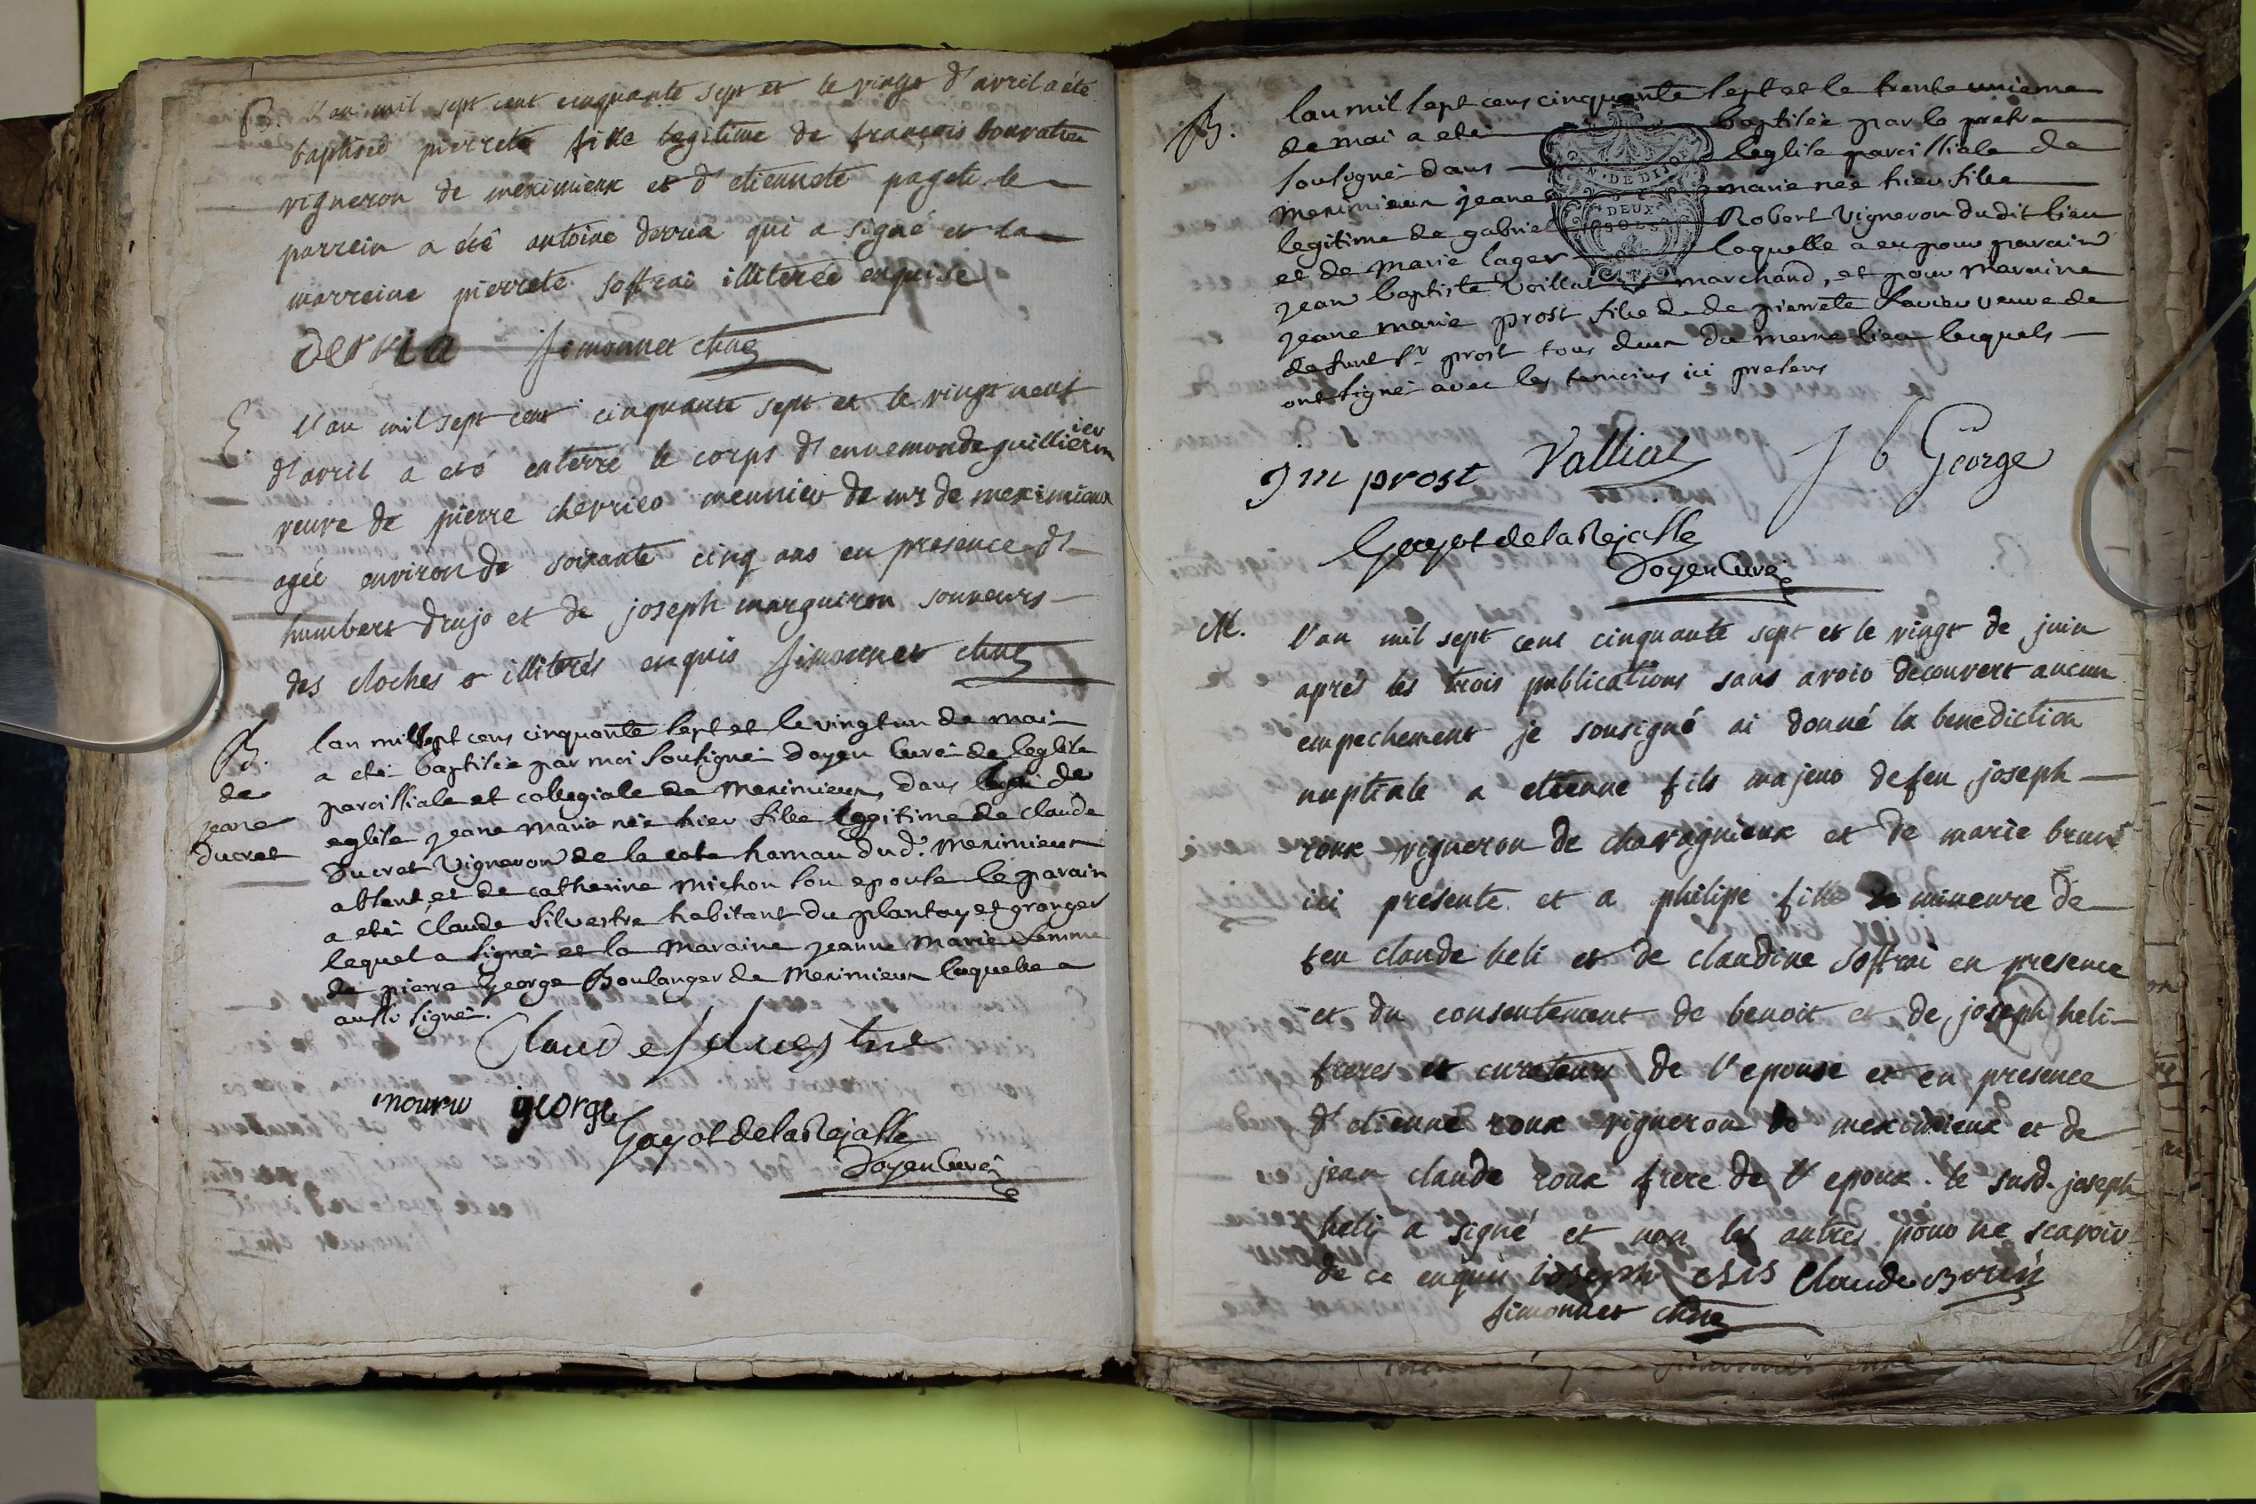 B. L'an mil sept cent cinquante sept et le vingt d'avril a été
baptisée pierrete fille legitime de françois bouvatier
vigneron de meximieux et d'etiennete pagets le
parrein a été antoine derria qui a signé et la
marreine pierrete soffrai illiterée enquise
derria simonnet chne
E. L'an mil sept cent cinquante sept et le vingt neuf
d'avril a eté enterré le corps d'ennemonde guilliermier
veuve de pierre chevrier meunier de mr de meximieux
agée environ de soixante cinq ans en presence d'
humbert drujo et de joseph marguiron sonneurs
des cloches illiterés enquis simonnet chne
B.
de
jeane
ducret
lan mil sept cens cinquante sept et le vingt un de mai
a eté baptisée par moi soussigné doyen curé de leglise
paroissiale et collegiale de Meximieux, dans de
eglise jeane marie née hier fille legitime de claude
Ducret Vigneron de la cote hamau dud. Meximieux
absent, et de catherine michon son epouse le parain
a eté claude silvestre habitant du plantay et granger
lequel a signé et la maraine jeanne marie femme
de pierre George Boulanger de Meximieux laquelle a
aussi signé.
Claude silvestre
george
Gayot de la Rejasse
Doyen Curé
B. lan mil sept cens cinquante sept et le trente unieme
de mai a eté baptisée par le pretre
soussigné dans leglise paroissiale de
meximieux jeane marie née hier fille
legitime de gabriel Robert vigneron dudit lieu
et de marie lager laquelle a eu pour parain
jean baptiste voillat marchand, et pour maraine
jeane marie prost fille de pierrete veuve de
defunt Sr prost tous deux du meme lieu lequels
ont signé avec les temoins ici presens
N. DE DIJON
DEUX
SOLS
jm prost Valliat J b George
Gayot de la Rejasse
Doyen Curé
M. L'an mil sept cent cinquante sept et le vingt de juin
aprés les trois publications sans avoir decouvert aucun
empechement je sousigné ai donné la benediction
nuptiale a etienne fils majeur de feu joseph
roux vigneron de charagnieux et de marie brun
ici présente et a philipe fille mineure de
feu claude heli et de claudine soffrai en presence
et du consentement de benoit et de joseph heli
freres et curateurs de l'epouse et en presence
d'etienne roux vigneron de meximieux et de
jean claude roux frere de l'epoux. le susd. joseph
heli a signé et non les autres pour ne scavoir
de ce enquis ioseph elis Claude Brun
simonnet chne